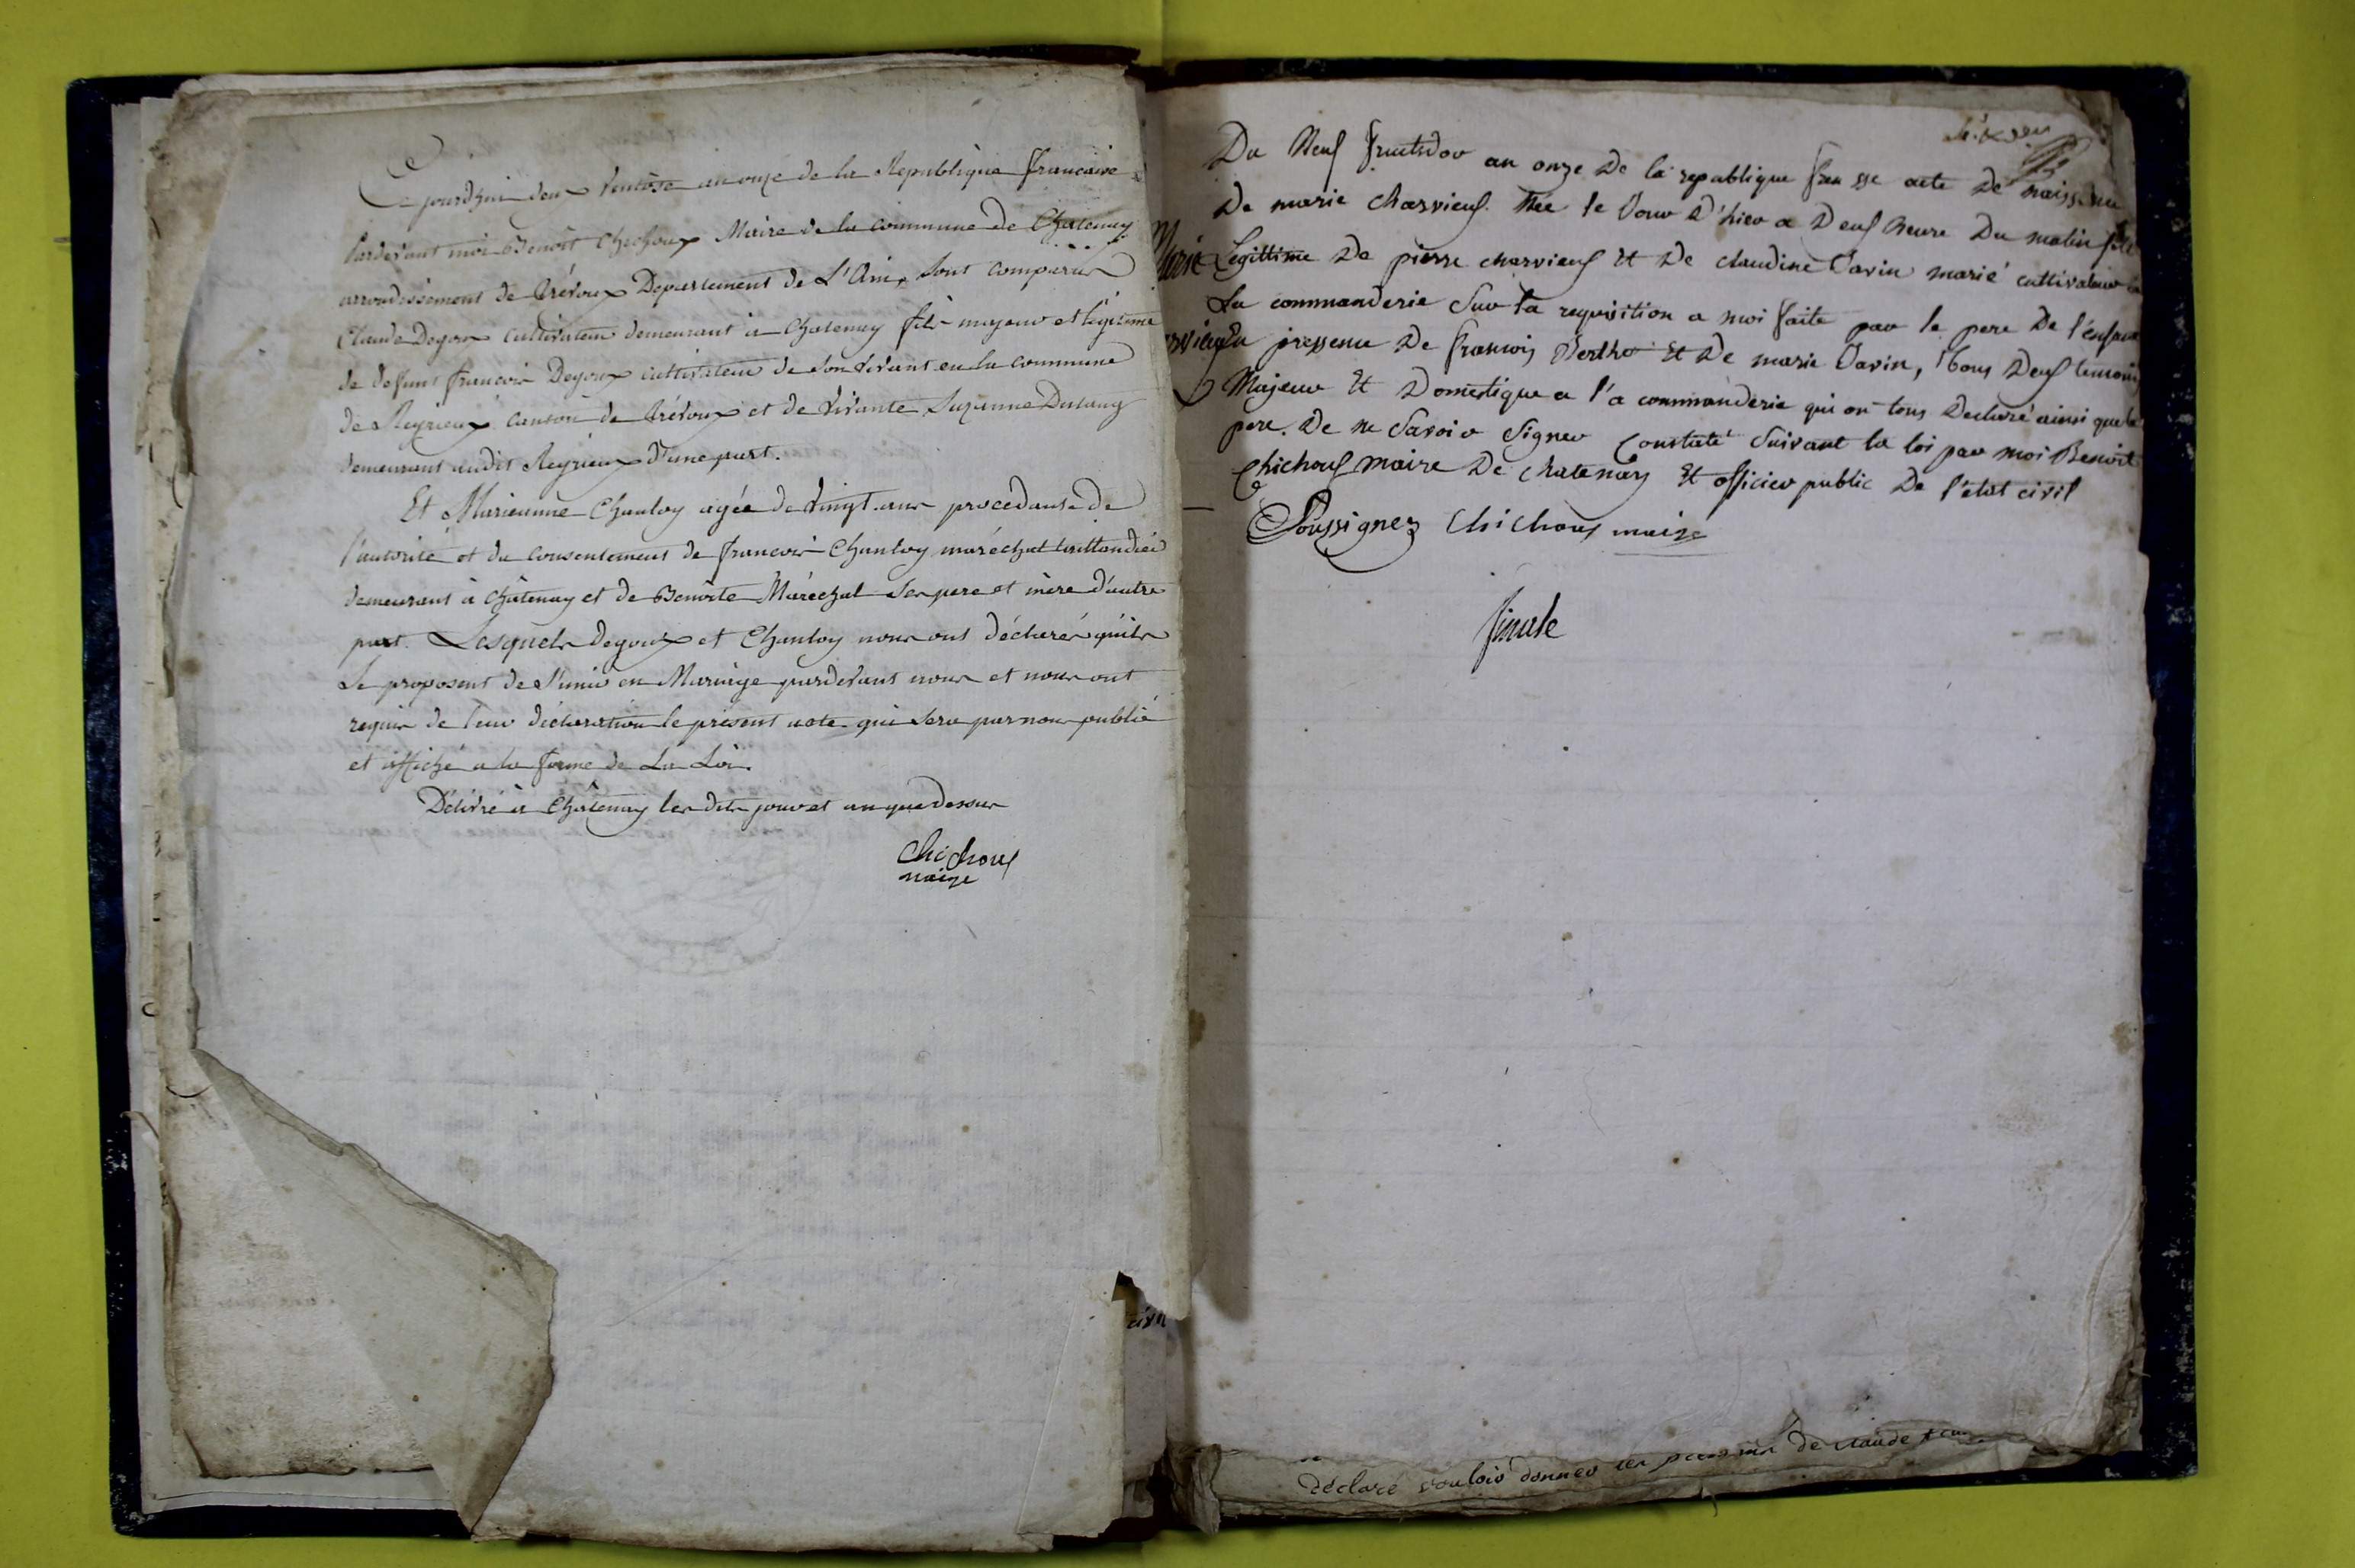 Cejourdhui deux Ventôse an onze de la République francaise
Pardevant moi Benoît Chichoux Maire de la commune de Chatenay
arrondissement de Trévoux Departement de L'Ain, sont comparus
Claude Degoux cultivateur demeurant à Chatenay fils majeur et légitime
de deffunt francois Degoux cultivateur de son vivant en la commune
de Reyrieux canton de Trévoux et de vivante Suzanne
demeurant audit Reyrieux d'une part.
Et Marianne Chanloy agée de vingt ans procedante de
l'autorité et du consentement de francois Chanloy maréchal taillandié
demeurant à Châtenay et de Benoîte Maréchal ses pere et mère d'autre
part. Lesquels Degoux et Chanloy nous ont déclarés qu'ils
se proposent de s'unir en Mariage pardevant nous et nous ont
requis de leur déclaration le présent acte qui sera par nous publié
et affiché a la forme de La Loi.
Délivré à Châtenay les dits jour et an que dessus
Chichoux
maire
Du Neuf fructidor an onze De la republique acte De naissance
De marie charvieux Née le Jour D'hier a Deux heure Du matin fille
Marie Legittime De pierre charvieux Et De claudine Varin marié cultivateur
La commanderie Sur la requisition a moi faite par le pere De l'enfant
En pressence De francois Berthet Et De marie Varin, tous Deux temoin
Majeur Et Domestique a l'a commanderie qui on tous Declaré ainsi que le
pere De ne Savoir Signer Constaté Suivant la loi par moi Benoit
Chichoux maire De chatenay Et officier public De l'état civil
Soussignez Chichoux maire
finale
civil
déclaré vouloir donner les de claude